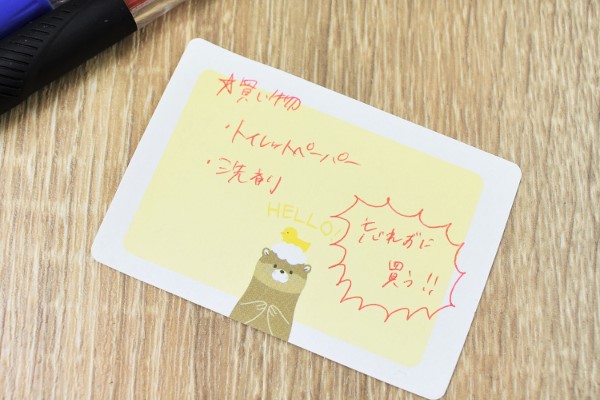 ☆買い物
・トイレットペーパー
・洗剤
HELLO!
忘れずに
買う!!